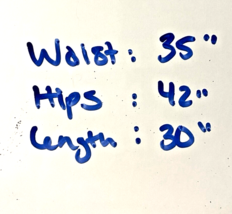 Waist: 35"
Hips : 42"
Length : 30"